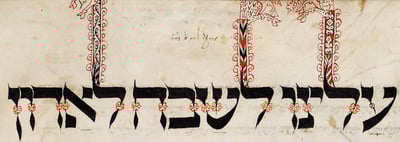 עלינו לשבח לאדון